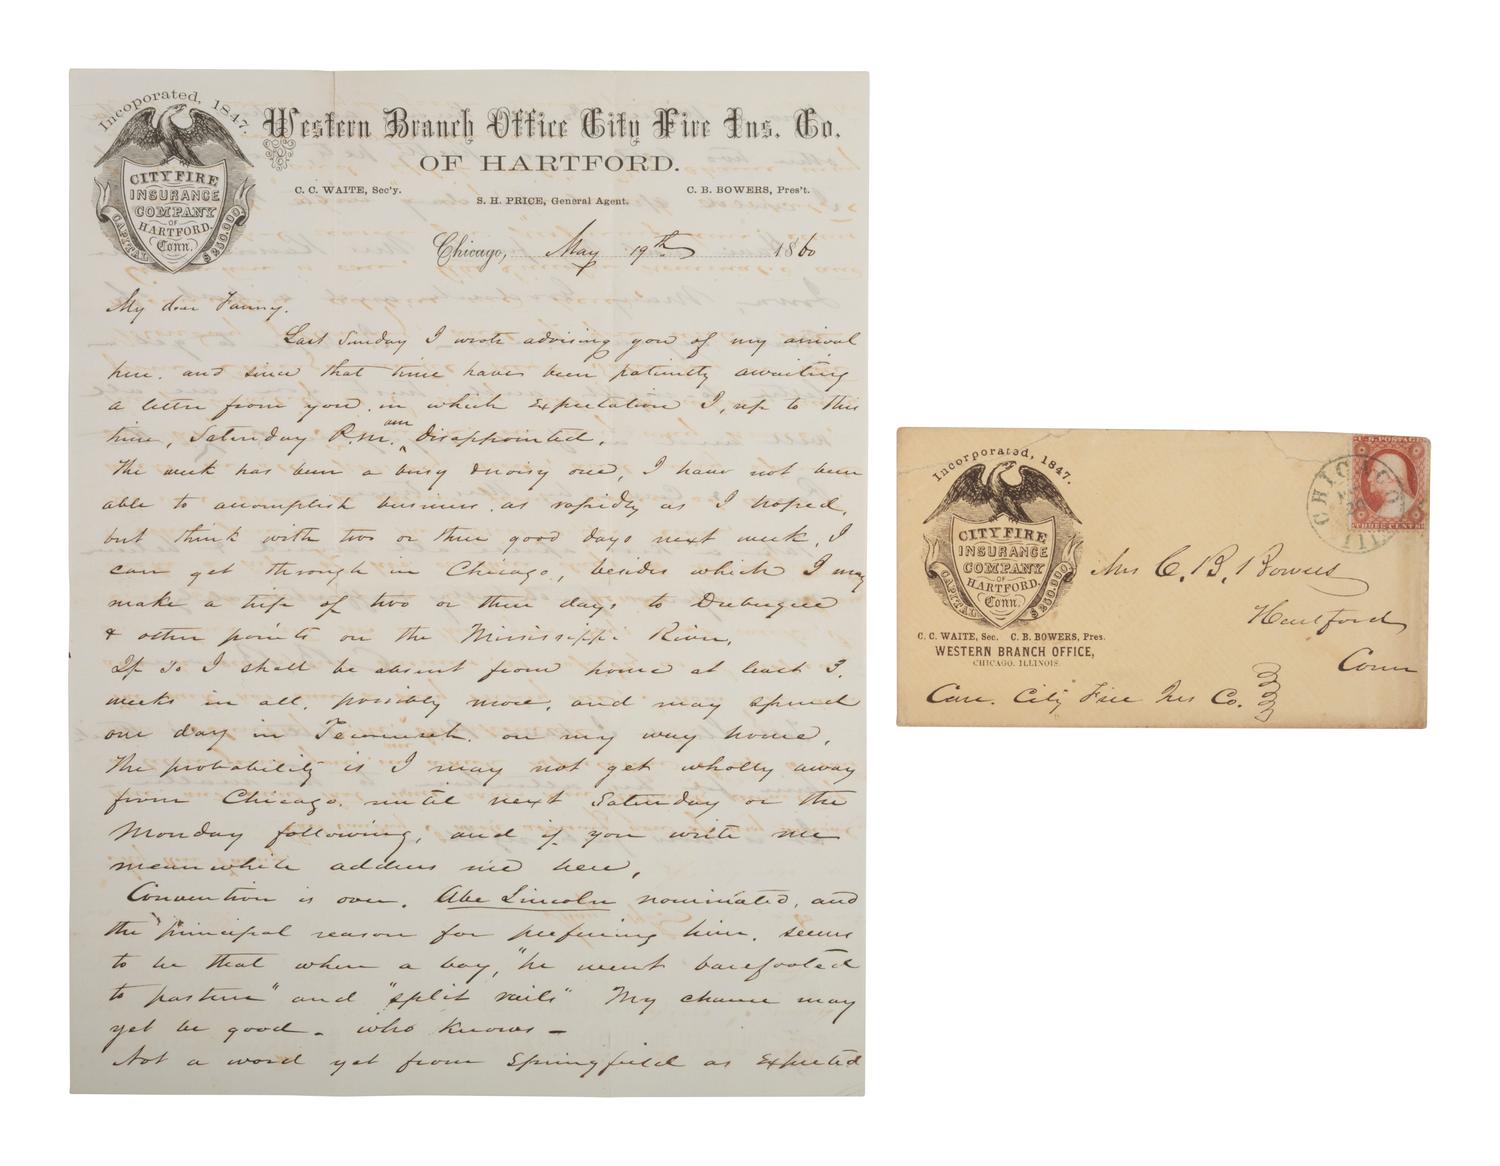 Incorporated, 1847.
CITY FIRE
INSURANCE
COMPANY
OF
HARTFORD.
Conn.
CAPITAL $250,000
Western Branch Office City Fire Ins. Co.
OF HARTFORD.
C. C. WAITE, Sec'y.
C. B. BOWERS, Pres't.
S. H. PRICE, General Agent.
Chicago, May 19th 1860
My dear Fanny.
Last Sunday I wrote advising you of my arrival
here. and since that time have been patiently awaiting
a letter from you. in which Expectation I, up to this
time, Saturday P.M. am disappointed.
The week has been a busy & noisy one, I have not been
able to accomplish business as rapidly as I hoped,
but think with two or three good days next week, I
can get through in Chicago, besides which I may
make a trip of two or three days to Dubuque
& other points on the Mississippi River.
If so I shall be absent from home at least 3.
weeks in all, possibly more, and may spend
one day in Tecumseh. on my way home.
The probability is I may not get wholly away
from Chicago. until next Saturday or the
Monday following, and if you write me
meanwhile address me here,
Convention is over. Abe Lincoln nominated, and
the principal reason for prefering him. seems
to be that when a boy, "he went barefooted
to pasture" and "split rails" My chance may
yet be good - who knows -
Not a word yet from Springfield as Expected
Incorporated, 1847.
CITY FIRE
INSURANCE
COMPANY
OF
HARTFORD.
Conn.
CAPITAL $250,000
C. C. WAITE, Sec. C. B. BOWERS, Pres.
WESTERN BRANCH OFFICE,
CHICAGO, ILLINOIS.
U.S. POSTAGE
THREE CENTS
CHICAGO
ILL
Mrs C. B. Bowers
Hartford
Conn
Care. City Fire Ins Co.